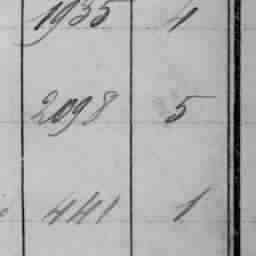 1935 4
2098 5
441 1